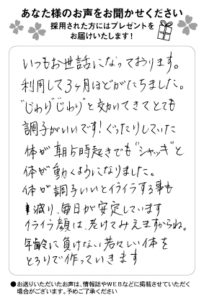 あなた様のお声をお聞かせください
採用された方にはプレゼントを
お届けいたします!
いつもお世話になっております。
利用して3ヶ月ほどがたちました。
"じわりじわり"と効いてきてとても
調子がいいです!ぐったりしていた
体が朝5時起きでも"シャッキ"と
体が動くようになりました。
体が調子いいとイライラする事も
減り、毎日が安定しています
イライラ顔は老けてみえますからね。
年齢に負けない若々しい体を
とろりで作っていきます
●お送りいただいたお声は、情報誌やWEBなどに掲載させていただく
場合がございます。予めご了承ください